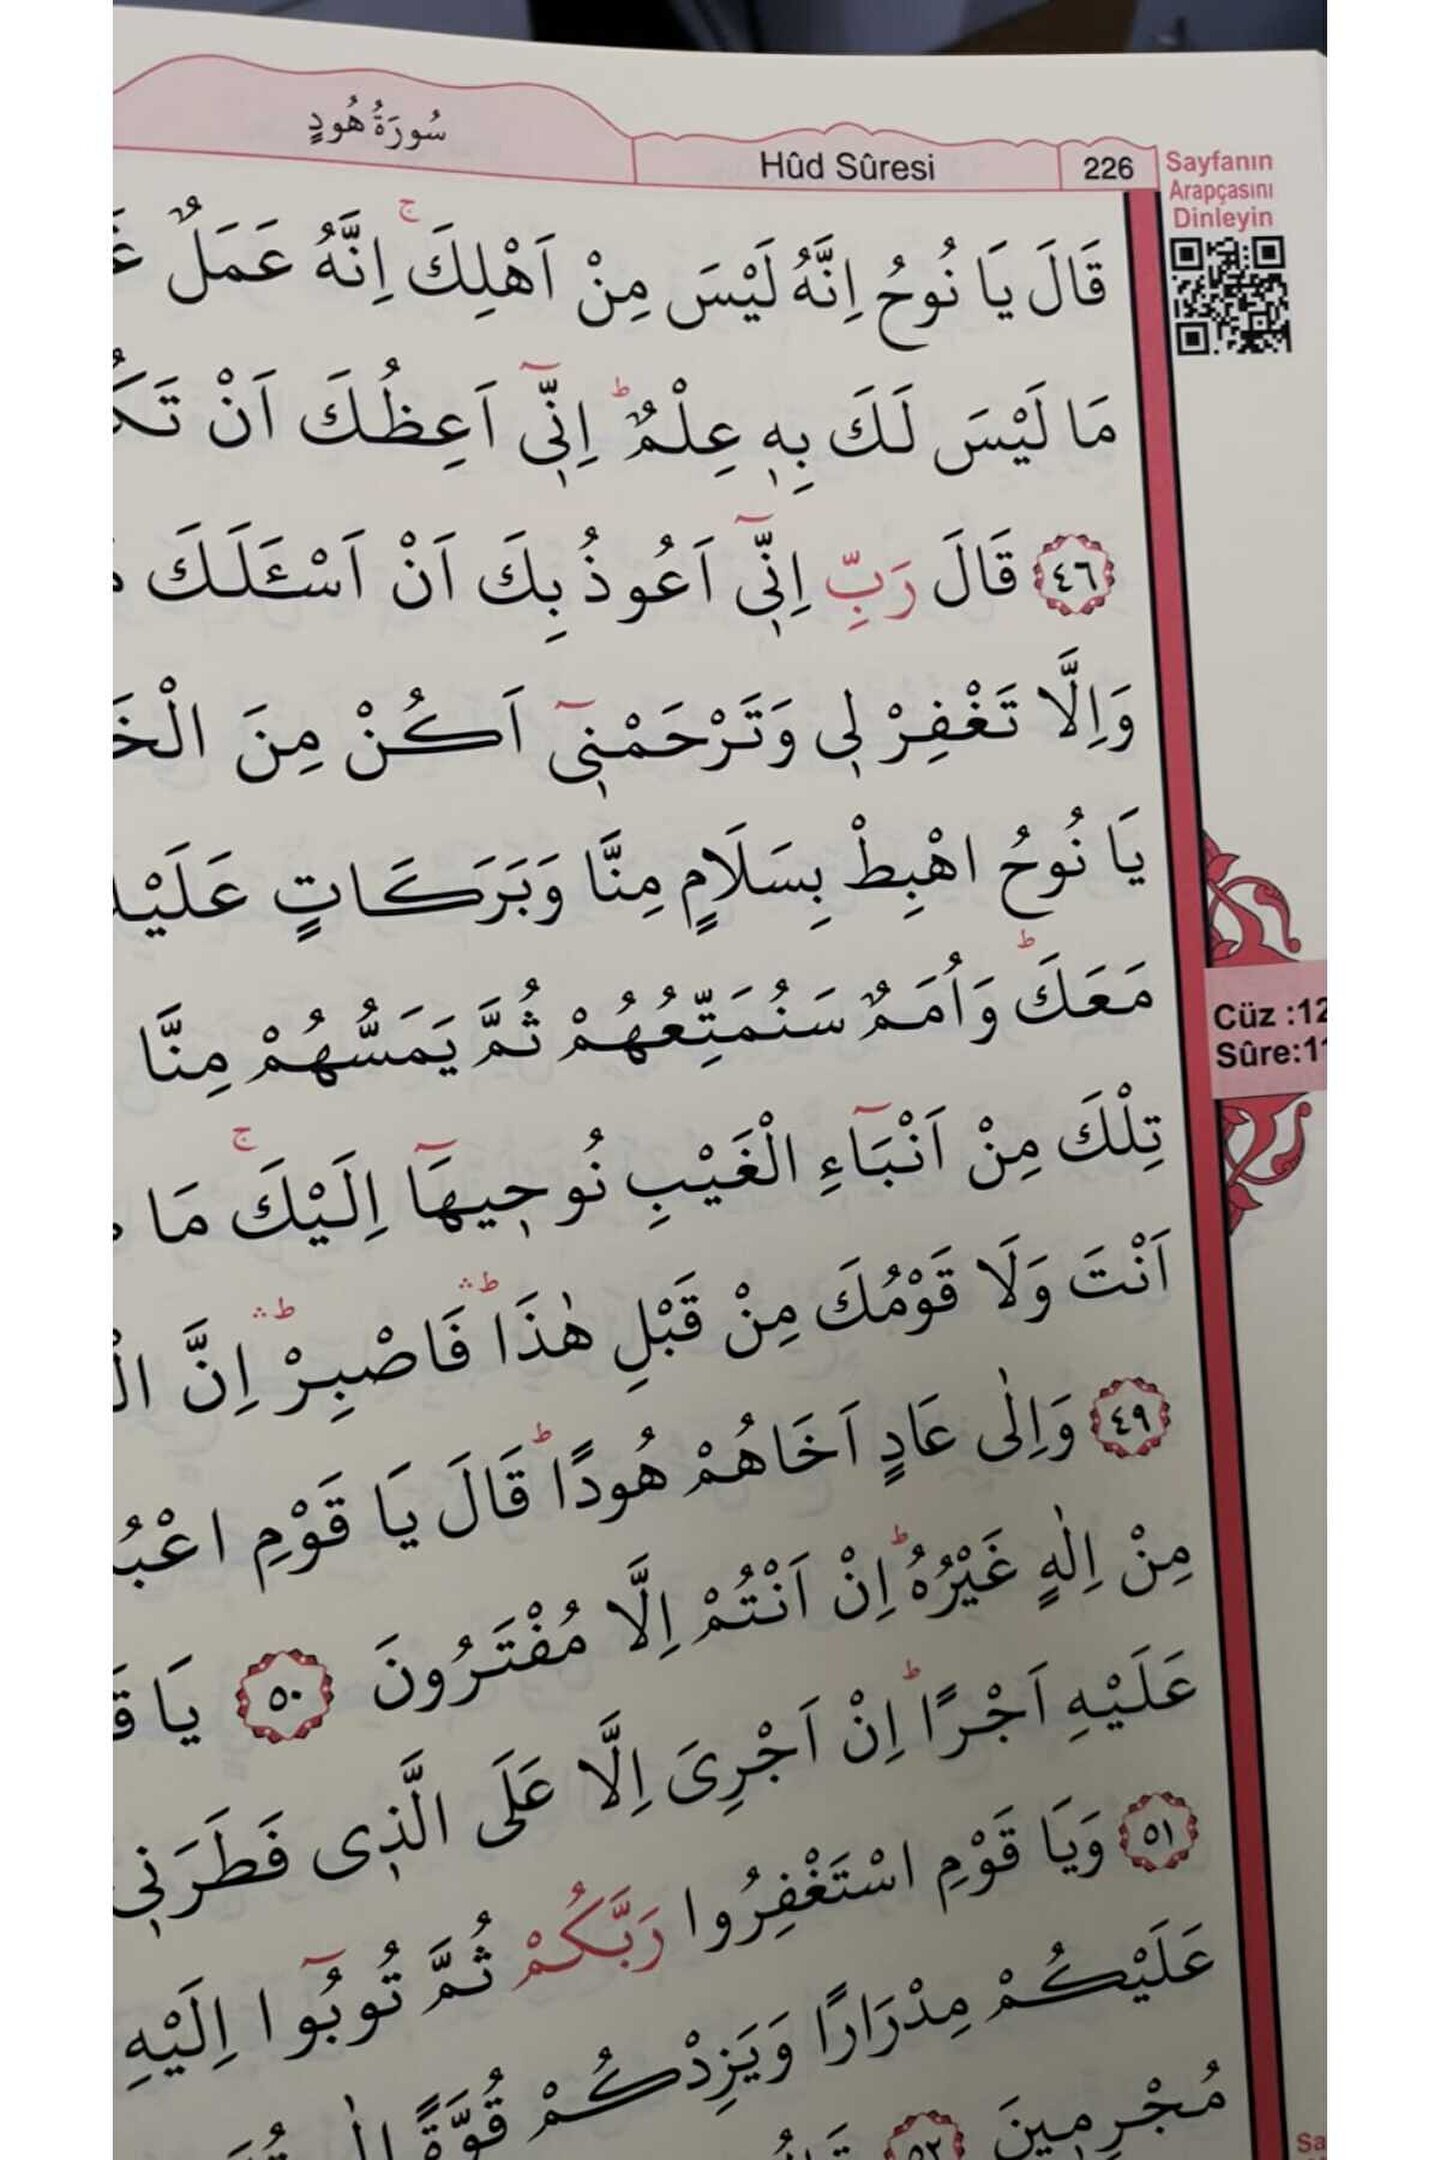 سُورَةُ هُودٍ
Hûd Sûresi
226
Sayfanın
Arapçasını
Dinleyin
قَالَ يَا نُوحُ اِنَّهُ لَيْسَ مِنْ اَهْلِكَ ۚ اِنَّهُ عَمَلٌ
مَا لَيْسَ لَكَ بِه۪ عِلْمٌ ۜ اِنّ۪ٓي اَعِظُكَ اَنْ
﴿٤٦﴾ قَالَ رَبِّ اِنّ۪ٓي اَعُوذُ بِكَ اَنْ اَسْـَٔلَكَ
وَاِلَّا تَغْفِرْ ل۪ي وَتَرْحَمْن۪ٓي اَكُنْ مِنَ
يَا نُوحُ اهْبِطْ بِسَلَامٍ مِنَّا وَبَرَكَاتٍ
مَعَكَ ۜ وَاُمَمٌ سَنُمَتِّعُهُمْ ثُمَّ يَمَسُّهُمْ مِنَّا
تِلْكَ مِنْ اَنْبَٓاءِ الْغَيْبِ نُوح۪يهَٓا اِلَيْكَ ۚ مَا
اَنْتَ وَلَا قَوْمُكَ مِنْ قَبْلِ هٰذَا ۜۛ فَاصْبِرْ ۜۛ اِنَّ
﴿٤٩﴾ وَاِلٰى عَادٍ اَخَاهُمْ هُودًا ۜ قَالَ يَا قَوْمِ
مِنْ اِلٰهٍ غَيْرُهُ ۜ اِنْ اَنْتُمْ اِلَّا مُفْتَرُونَ ﴿٥٠﴾ يَا
عَلَيْهِ اَجْرًا ۜ اِنْ اَجْرِيَ اِلَّا عَلَى الَّذ۪ي فَطَرَن۪ي
﴿٥١﴾ وَيَا قَوْمِ اسْتَغْفِرُوا رَبَّكُمْ ثُمَّ تُوبُٓوا اِلَيْهِ
عَلَيْكُمْ مِدْرَارًا وَيَزِدْكُمْ قُوَّةً
مُجْرِم۪ينَ ﴿٥٢﴾
Cüz :12
Sûre:11